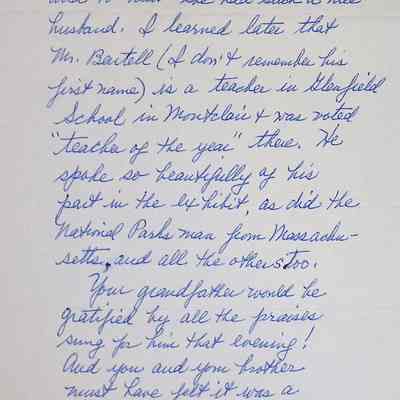 husband. I learned later that
Mr. Bartell (I don't remember his
first name) is a teacher in Glenfield
School in Montclair & was voted
"teacher of the year" there. He
spoke so beautifully of his
part in the exhibit, as did the
National Parks man from Massachu-
setts, and all the others too.
Your grandfather would be
gratified by all the praises
sung for him that evening!
And you and your brother
must have felt it was a